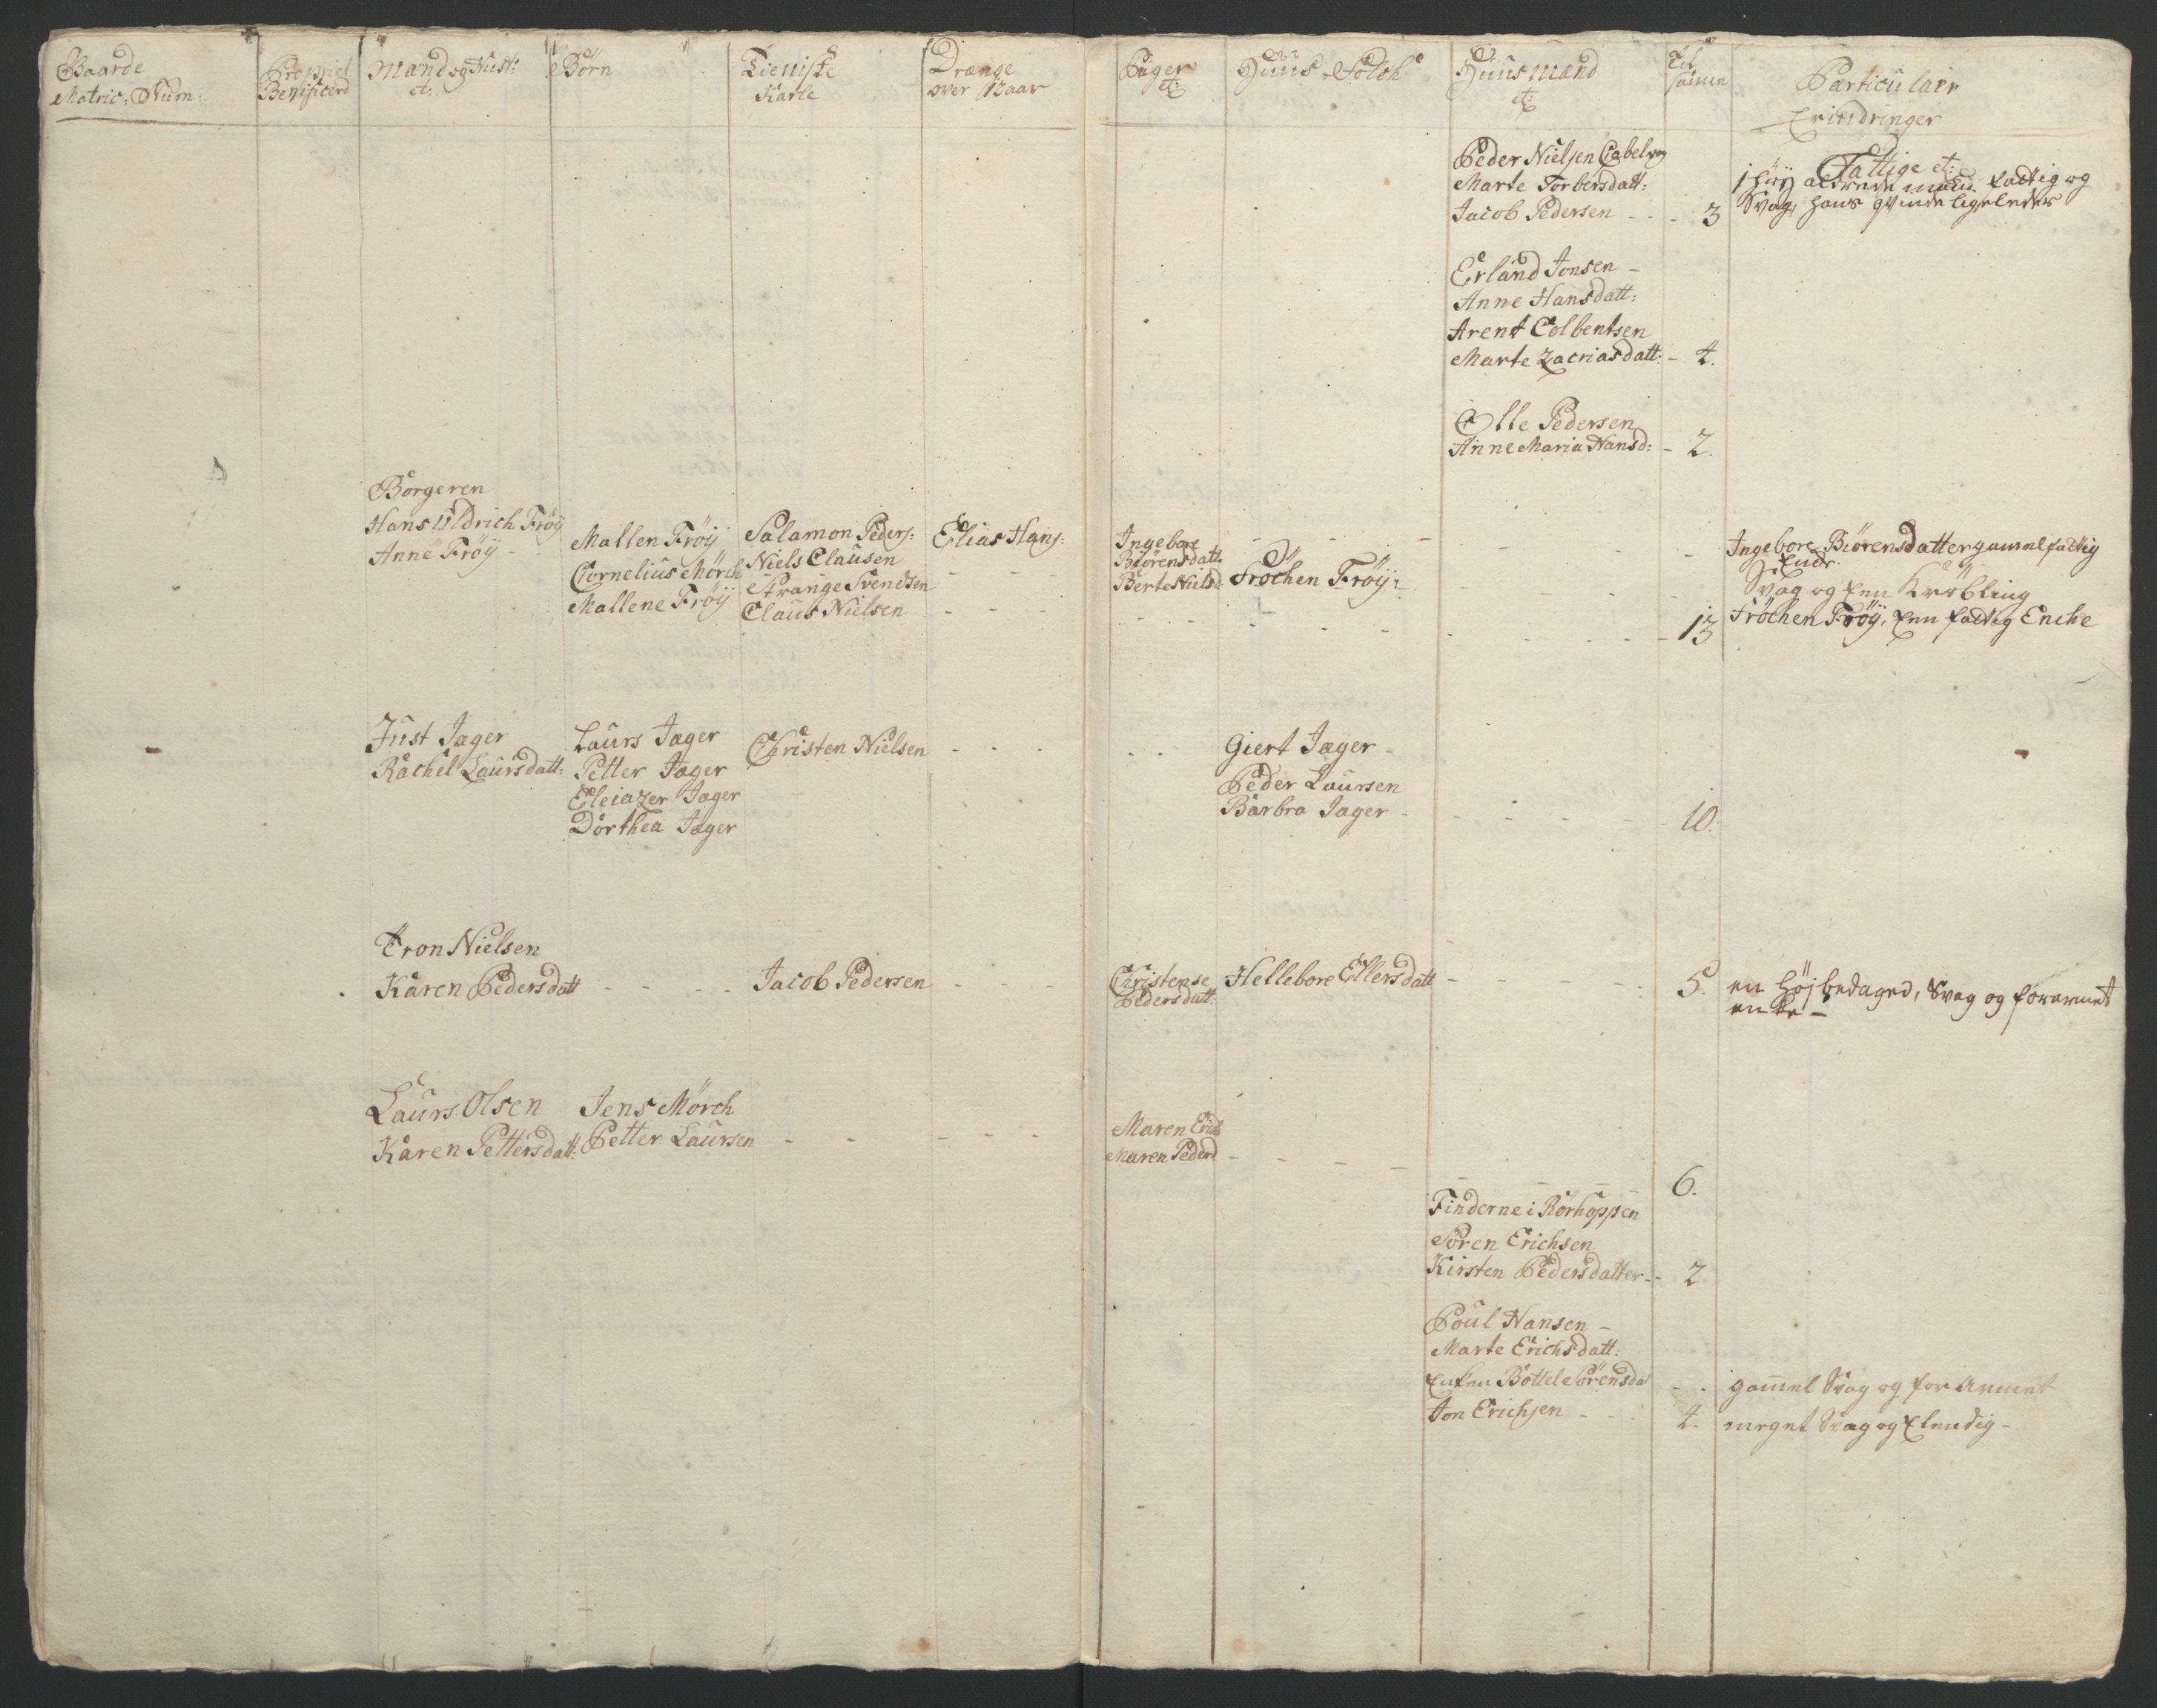 Gaarde
Matric: Num:
Propriet:
Benificerd
Mand og Hust:
et:
Börn
Tieniste
Karle
Drænge
over 12 aar
Piger
et:
Huus-Folch
Huusmænd
et:
Til
samen
Particulair
Erindringer
Peder Nielsen Cabelvog
Marte Torbersdatt:
Jacob Pedersen - - 3
Fattige et:
i høy alderen mand fattig og
Svag, hans qvinde ligeleedes
Erland Jonsen -
Anne Hansdatt:
Arent Colbentsen
Marte Zacriasdatt: - 4.
Olle Pedersen
Anne Maria Hansd: - 2.
Borgeren
Hans Uldrich Fröÿ
Anne Fröÿ -
Mallen Fröÿ
Cornelius Mörch
Mallene Fröÿ
Salamon Peders:
Niels Clausen
Prange Svendsen
Claus Nielsen
Elias Hans:
Ingebore
Biörensdatt:
Berte Nielsd:
Fröchen Fröÿ:
13
Ingebore Biörensdatter gammel fattig
Svag og Een Kröbling
Fröchen Fröÿ, Een fattig Enche
Just Jager
Rachel Laursdatt:
Laurs Jager
Petter Jager
Eleiazer Jager
Dorthea Jager
Christen Nielsen
Giert Jager
Peder Laursen
Barbra Jager
10.
Tron Nielsen
Karen Pedersdatt
Jacob Pedersen
Christense
Pedersdatt:
Hellebore Ellersdatt
5.
en høj bedaged, Svag og forarmet
enke -
Laurs Olsen
Karen Pettersdatt:
Jens Mörch
Petter Laursen
Maren Erichs
Maren Pedersd
6.
Finderne i Rörhoppen
Sören Erichsen
Kirsten Pedersdatter - 2
Poul Hansen -
Marte Erichsdatt:
Enken Bottele Sörensda
gammel Svag og forarmet
Jon Erichsen - - 4
meget Svag og Elendig -